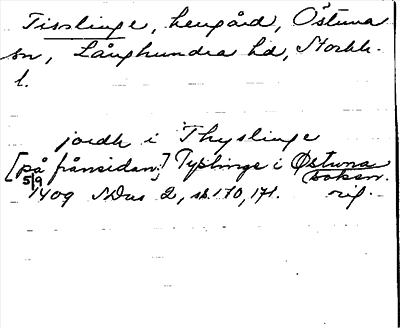 Tisslinge, hemgård, Östuna
sn, Långhundra hd, Stockh.
l.
jordh i Thyslinge
[på frånsidan:] Typlinge i Østuna
soksn.
5/9 1409 SDns 2, s. 170, 171. orig.